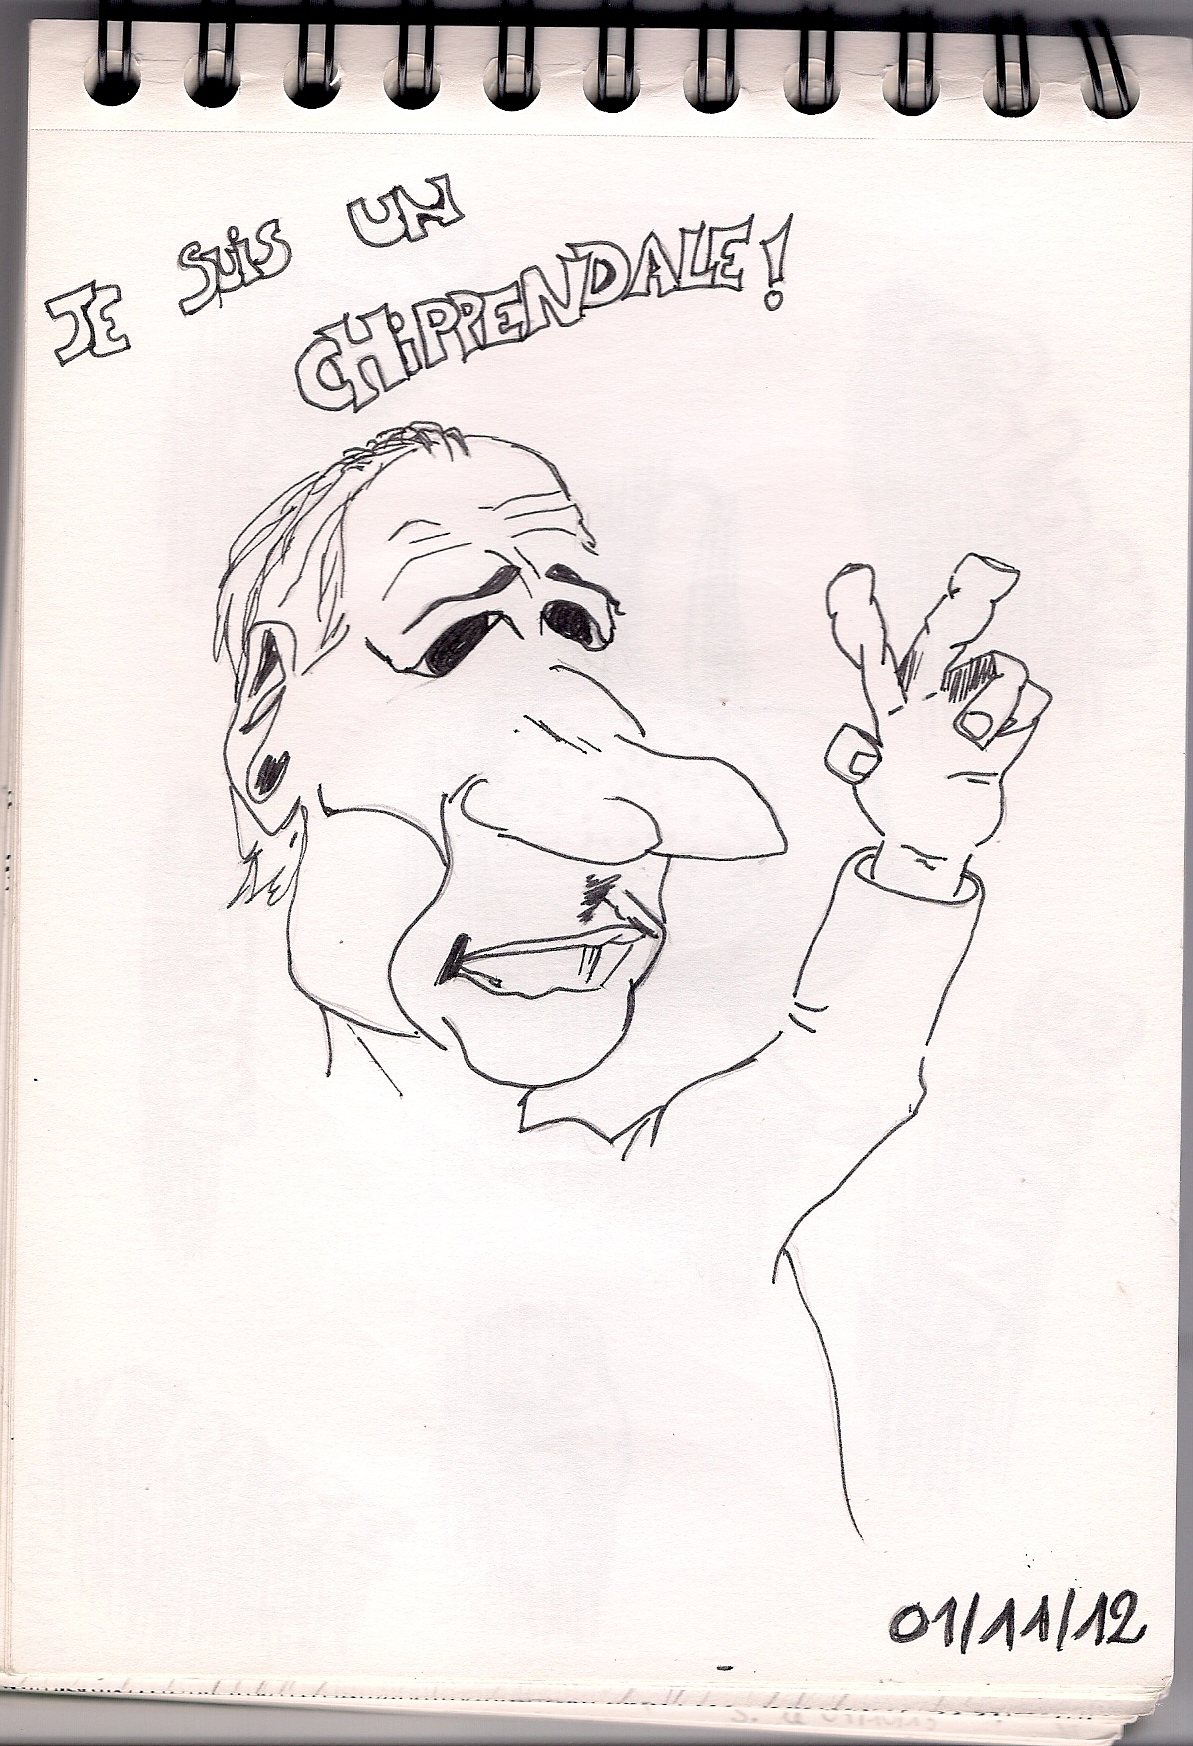 JE SUiS UN
CHiPPENDALE!
01/11/12